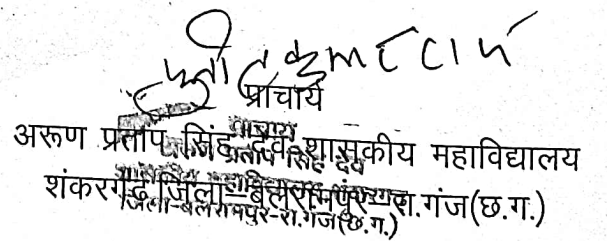 प्राचार्य
अरूण प्रताप सिंह देव शासकीय महाविद्यालय
शंकरगढ़ जिला-बलरामपुर-रा.गंज(छ.ग.)
प्राचार्य
प्रताप सिंह देव
जिला-बलरामपुर-रा.गंज(छ.ग.)